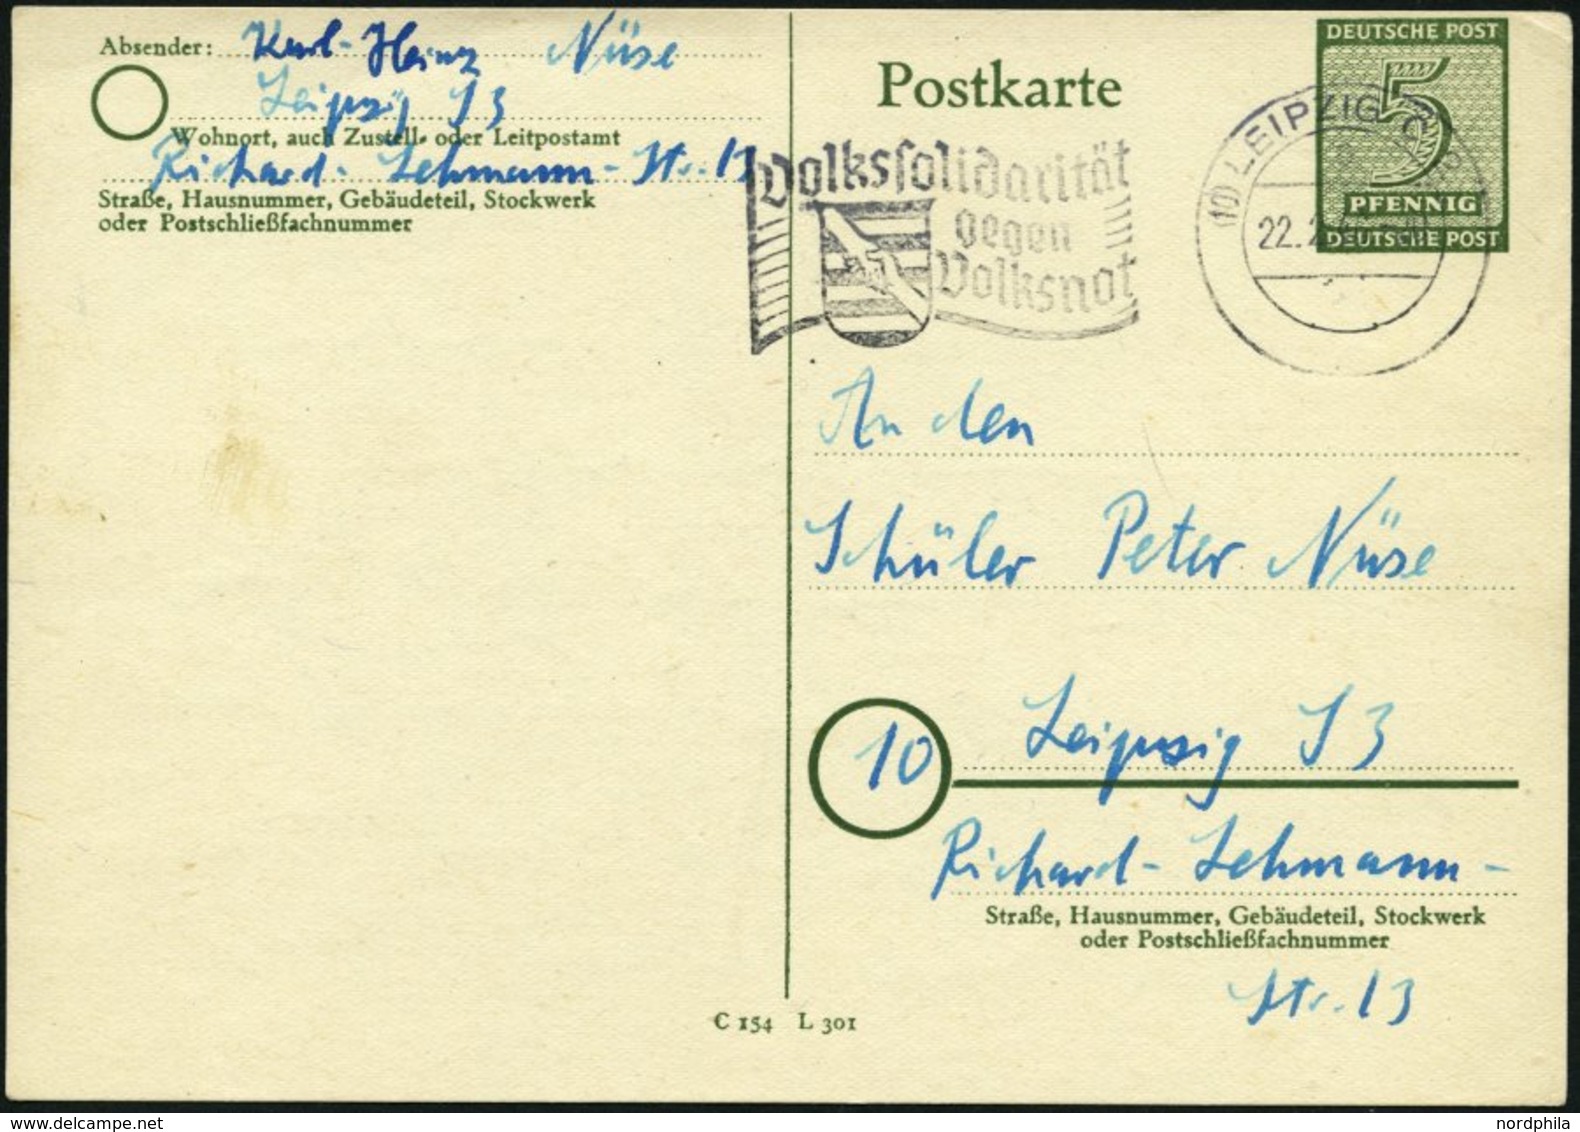 Absender: Karl-Heinz Nüse
Leipzig S 3
Wohnort, auch Zustell- oder Leitpostamt
Richard-Lehmann-Str. 13
Straße, Hausnummer, Gebäudeteil, Stockwerk
oder Postschließfachnummer
Postkarte
DEUTSCHE POST
5
PFENNIG
DEUTSCHE POST
(10) LEIPZIG
22.
Volkssolidarität
gegen
Volksnot
An den
Schüler Peter Nüse
10
Leipzig S 3
Richard-Lehmann-
Straße, Hausnummer, Gebäudeteil, Stockwerk
oder Postschließfachnummer
Str. 13
C 154 L 301
nordphila